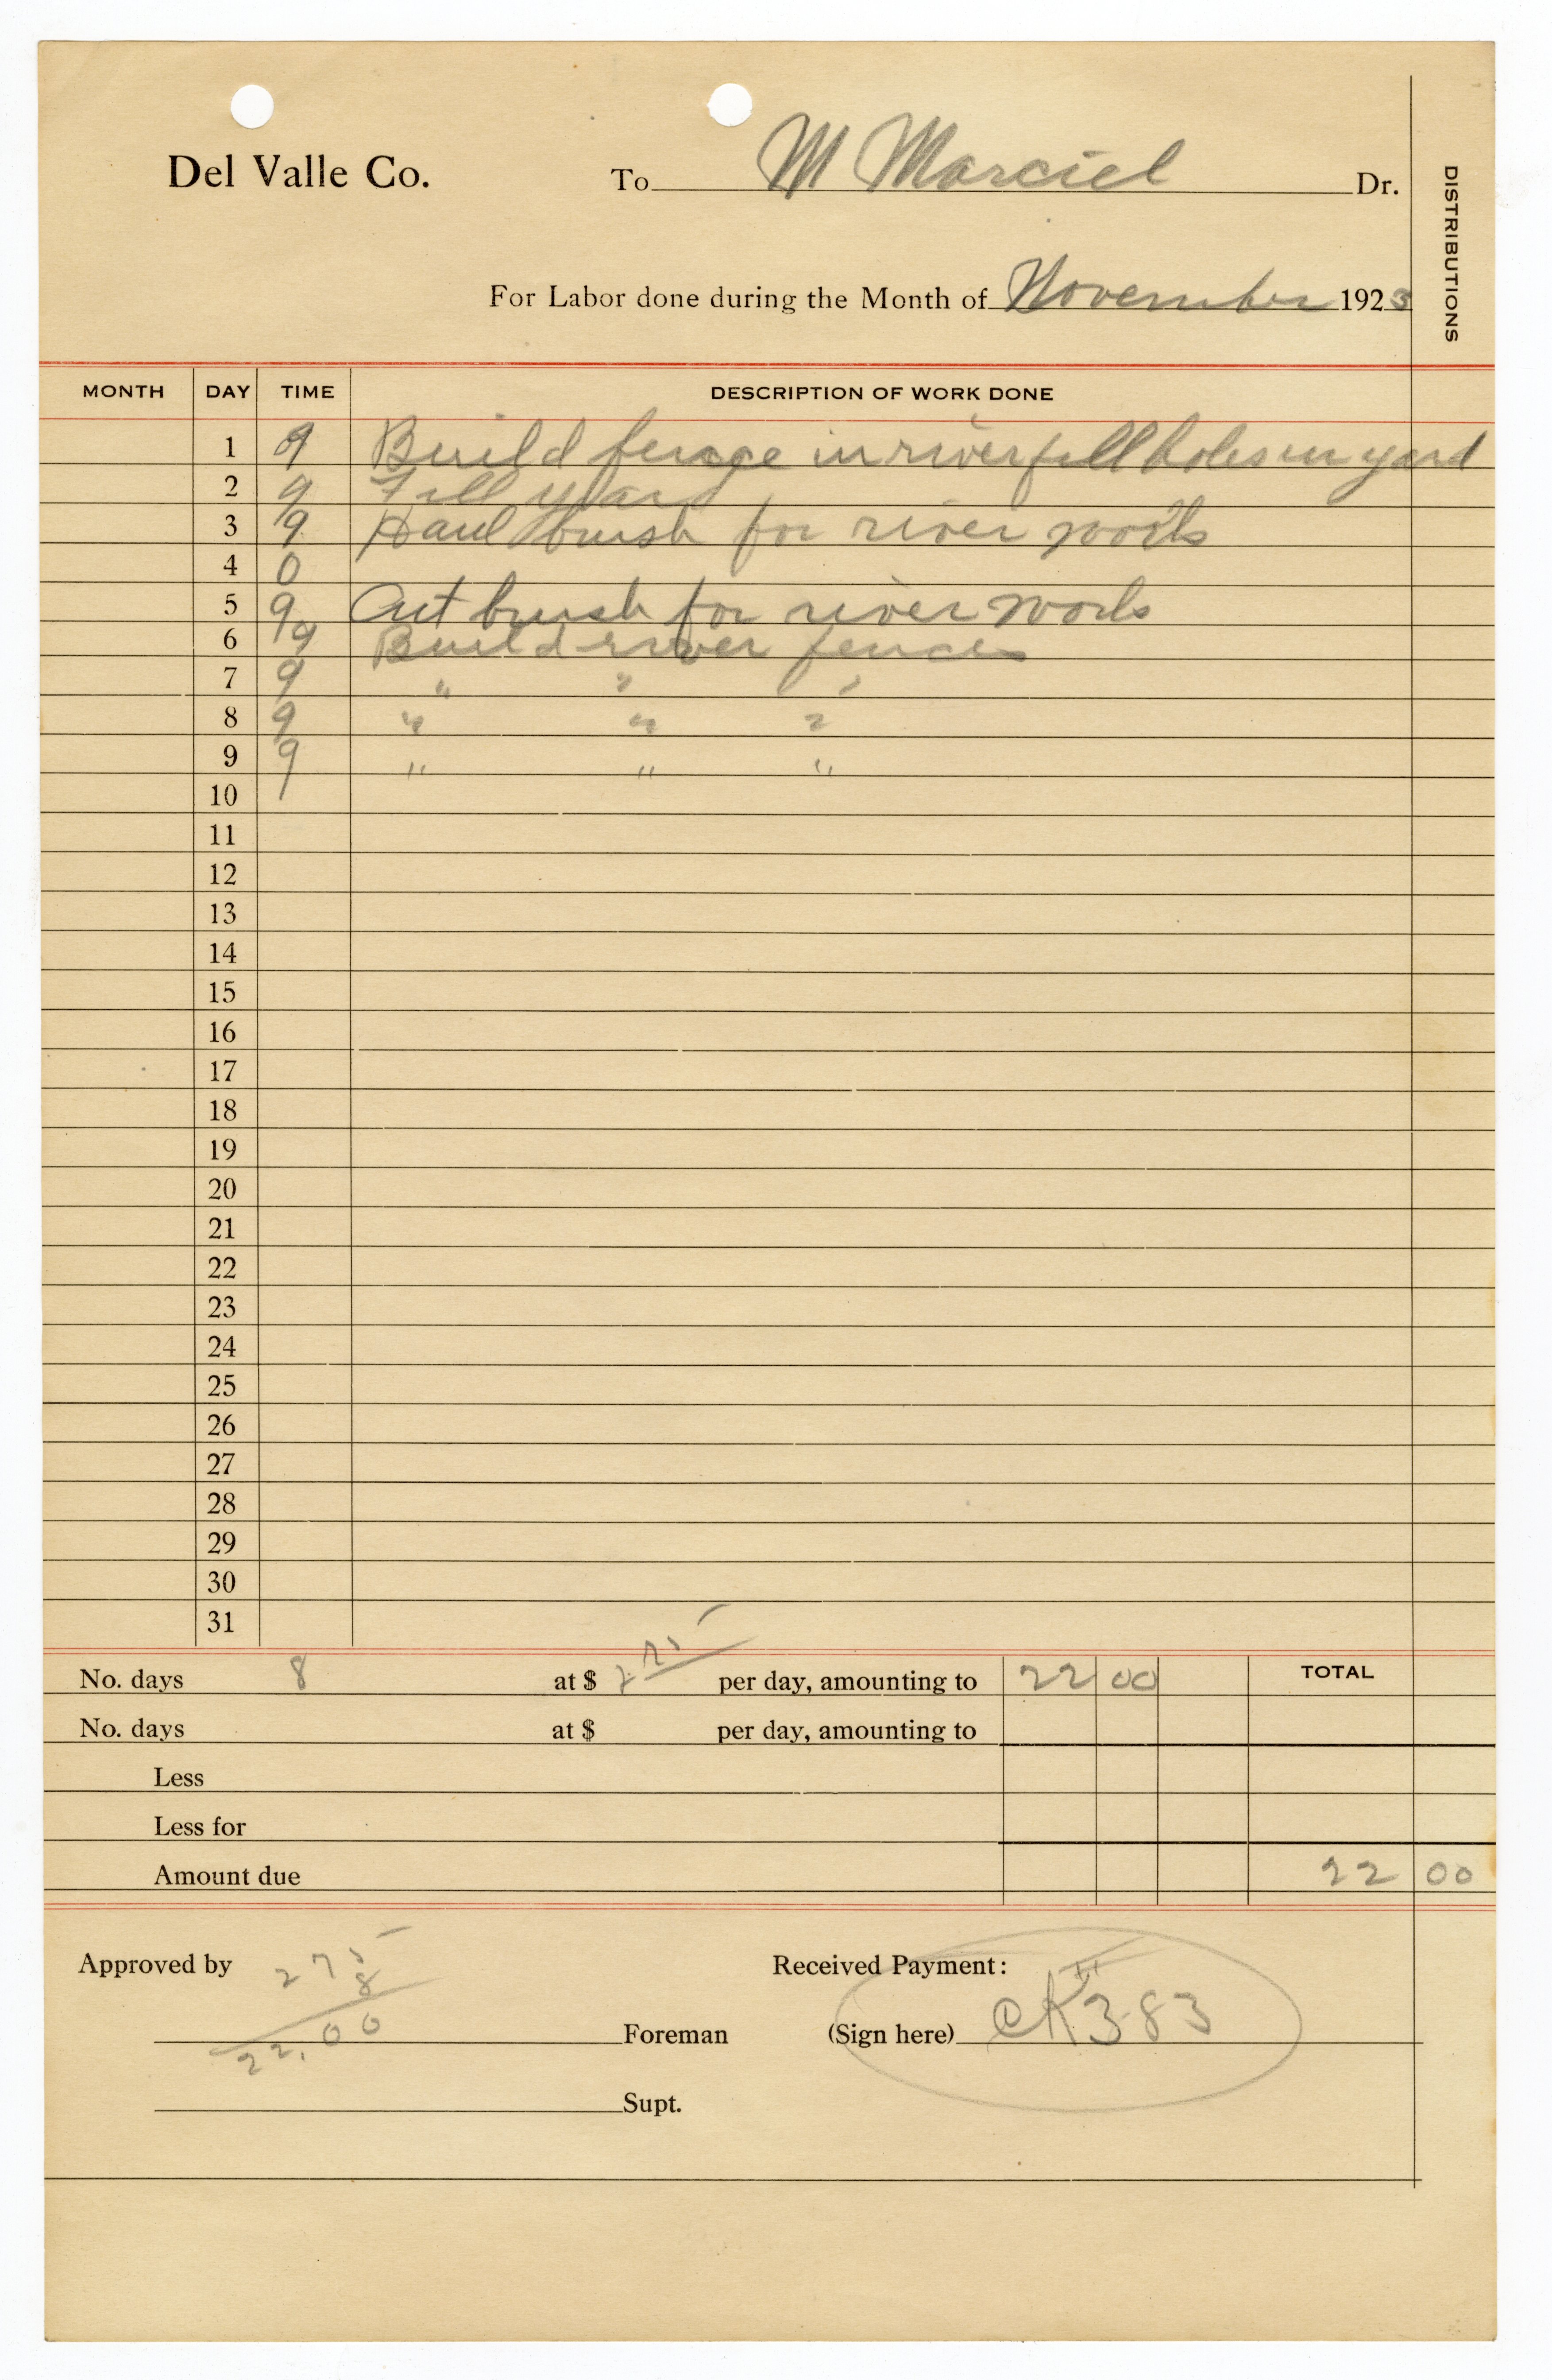 Del Valle Co. To M Marciel Dr.
DISTRIBUTIONS
For Labor done during the Month of November 1923
MONTH DAY TIME DESCRIPTION OF WORK DONE
1 9 Build fence in river fill holes in yard
2 9 Fill yard
3 9 Haul brush for river work
4 0
5 9 Cut brush for river work
6 9 Build river fences
7 9 " " "
8 9 " " "
9 9 " " "
10
11
12
13
14
15
16
17
18
19
20
21
22
23
24
25
26
27
28
29
30
31
No. days 8 at $ 2 75 per day, amounting to 22 00 TOTAL
No. days at $ per day, amounting to
Less
Less for
Amount due 22 00
Approved by 275 Received Payment:
8
22.00 Foreman (Sign here) CK 383
Supt.